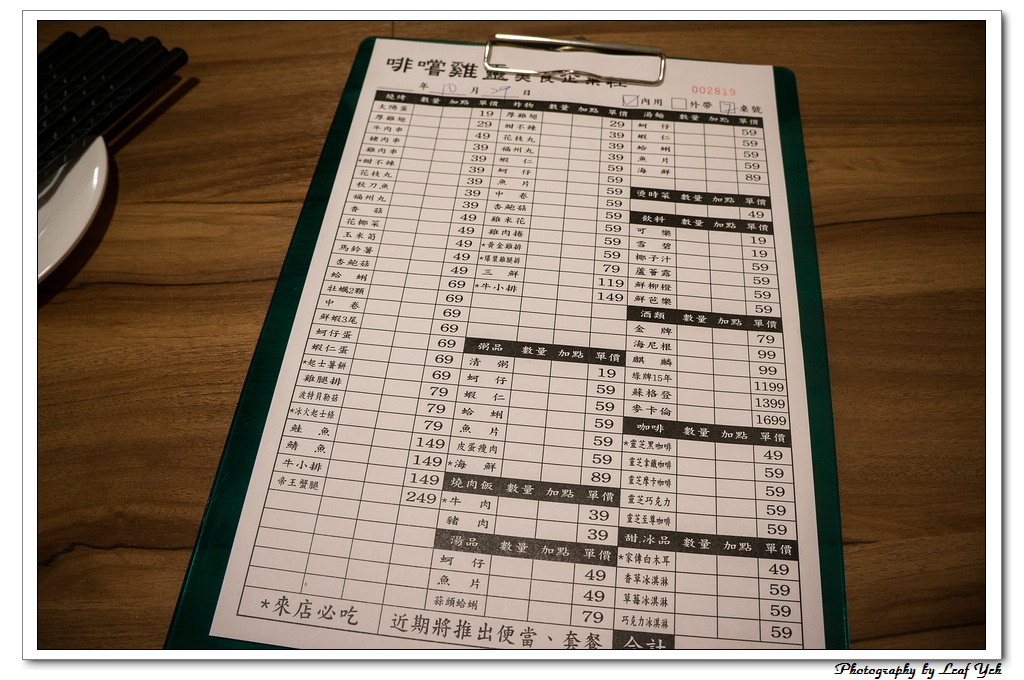 啡嚐雞靈美食企業社
002819
年 10 月 29 日
☑內用 □外帶 7 桌號
燒烤 數量 加點 單價
太陽蛋 19
厚雞翅 29
牛肉串 49
豬肉串 39
雞肉串 39
*甜不辣 39
花枝丸 39
秋刀魚 39
福州丸 39
香菇 49
花椰菜 49
玉米筍 49
馬鈴薯 49
杏鮑菇 49
蛤蜊 69
牡蠣2顆 69
中卷 69
鮮蝦3尾 69
蚵仔蛋 69
蝦仁蛋 69
*起士薯餅 69
雞腿排 79
波特貝勒菇 79
*冰火起士條 79
鮭魚 149
鯖魚 149
牛小排 149
帝王蟹腿 249
炸物 數量 加點 單價
厚雞翅 29
甜不辣 39
花枝丸 39
福州丸 39
蝦仁 59
蚵仔 59
魚片 59
中卷 59
杏鮑菇 59
雞米花 59
雞肉捲 59
*黃金雞排 59
*爆漿雞腿排 79
三鮮 119
*牛小排 149
粥品 數量 加點 單價
清粥 19
蚵仔 59
蝦仁 59
蛤蜊 59
魚片 59
皮蛋瘦肉 59
*海鮮 89
燒肉飯 數量 加點 單價
*牛肉 39
豬肉 39
湯品 數量 加點 單價
蚵仔 49
魚片 49
蒜頭蛤蜊 79
湯麵 數量 加點 單價
蚵仔 59
蝦仁 59
蛤蜊 59
魚片 59
海鮮 89
燙時菜 數量 加點 單價
49
飲料 數量 加點 單價
可樂 19
雪碧 19
椰子汁 59
蘆薈露 59
鮮柳橙 59
鮮芭樂 59
酒類 數量 加點 單價
金牌 79
海尼根 99
麒麟 99
綠牌15年 1199
蘇格登 1399
麥卡倫 1699
咖啡 數量 加點 單價
*靈芝黑咖啡 49
靈芝拿鐵咖啡 59
靈芝摩卡咖啡 59
靈芝巧克力 59
靈芝至尊咖啡 59
甜.冰品 數量 加點 單價
*家傳白木耳 49
香草冰淇淋 59
草莓冰淇淋 59
巧克力冰淇淋 59
*來店必吃
近期將推出便當、套餐
合計
Photography by Leaf Yeh